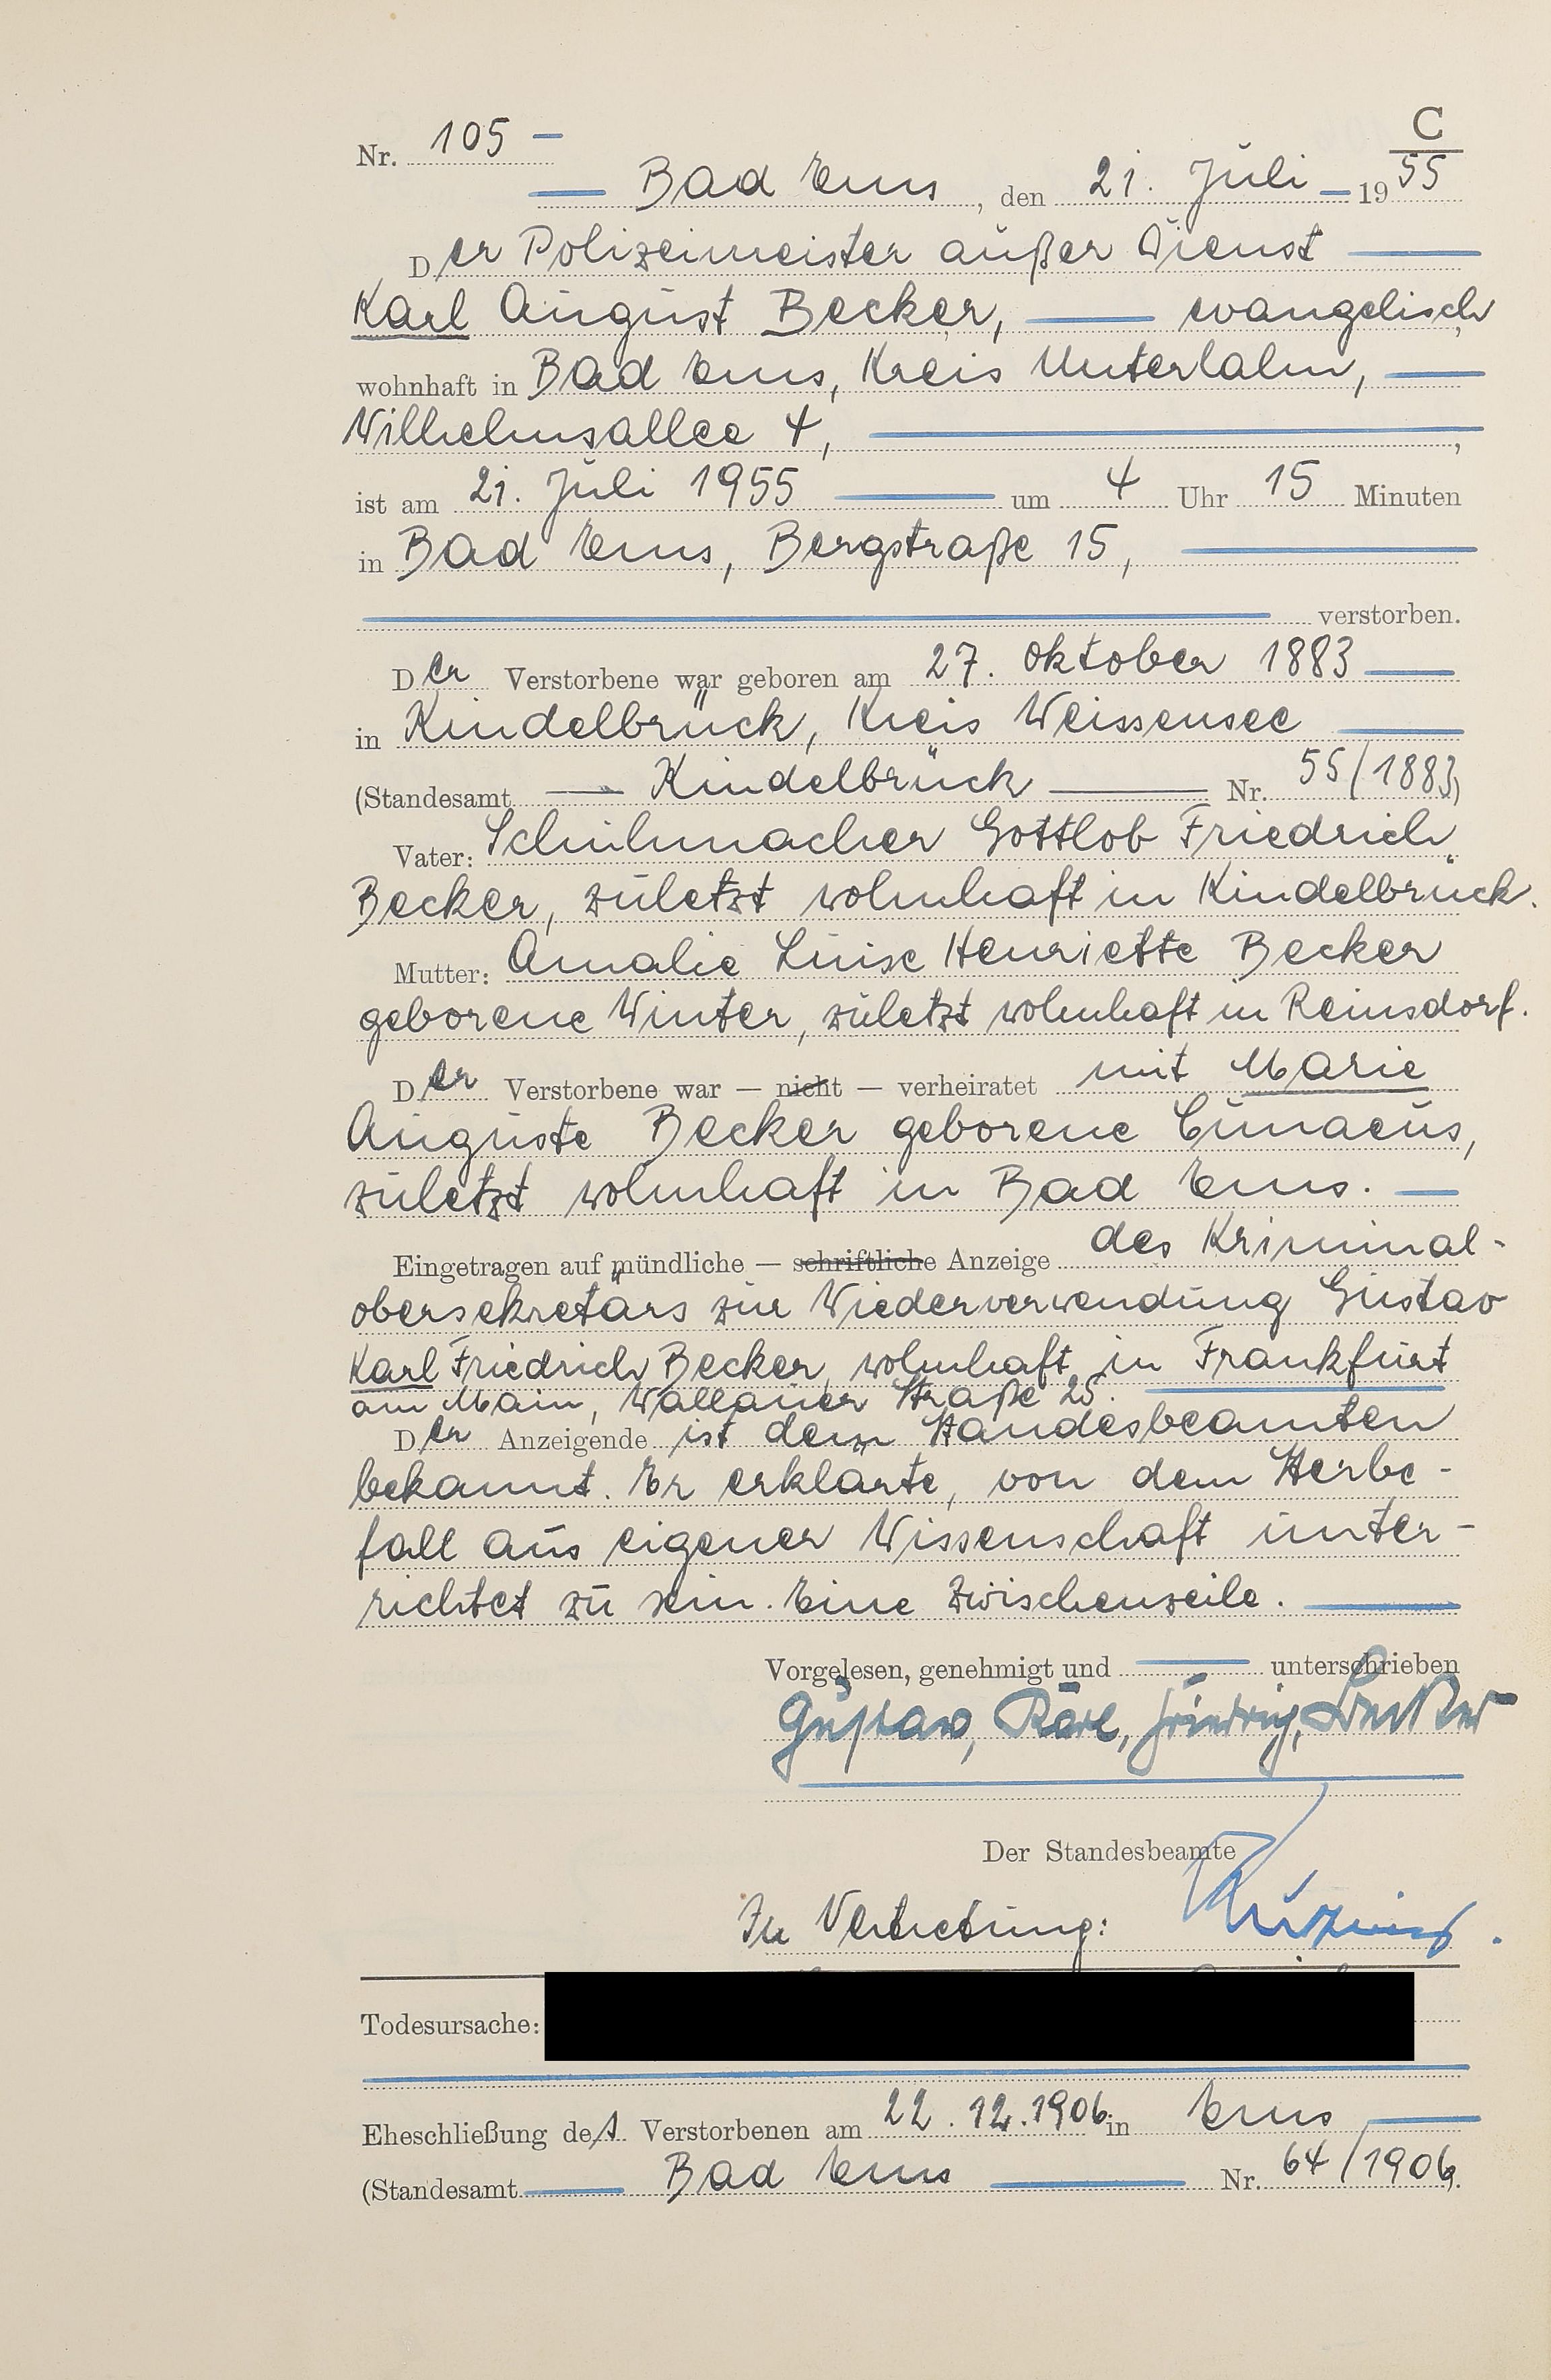 C
Nr. 105
Bad Ems, den 21. Juli 1955
Der Polizeimeister außer Dienst
Karl August Becker, evangelisch,
wohnhaft in Bad Ems, Kreis Unterlahn,
Wilhelmsallee 4,
ist am 21. Juli 1955 um 4 Uhr 15 Minuten
in Bad Ems, Bergstraße 15,
verstorben.
Der Verstorbene war geboren am 27. Oktober 1883
in Kindelbrück, Kreis Weissensee
(Standesamt Kindelbrück Nr. 55/1883)
Vater: Schuhmacher Gottlob Friedrich
Becker, zuletzt wohnhaft in Kindelbrück.
Mutter: Amalie Luise Henriette Becker
geborene Winter, zuletzt wohnhaft in Reinsdorf.
Der Verstorbene war — nicht — verheiratet mit Marie
Auguste Becker geborene Cunaeus,
zuletzt wohnhaft in Bad Ems.
Eingetragen auf mündliche — schriftliche Anzeige des Kriminal-
obersekretärs zur Wiederverwendung Gustav
Karl Friedrich Becker, wohnhaft in Frankfurt
am Main, Wallauer Straße 25.
Der Anzeigende ist dem Standesbeamten
bekannt. Er erklärte, von dem Sterbe-
fall aus eigener Wissenschaft unter-
richtet zu sein. Eine Zwischenzeile.
Vorgelesen, genehmigt und unterschrieben
Gustav, Karl, Friedrich, Becker
Der Standesbeamte
In Vertretung:
Todesursache:
Eheschließung des Verstorbenen am 22.12.1906 in Ems
(Standesamt Bad Ems Nr. 64/1906).